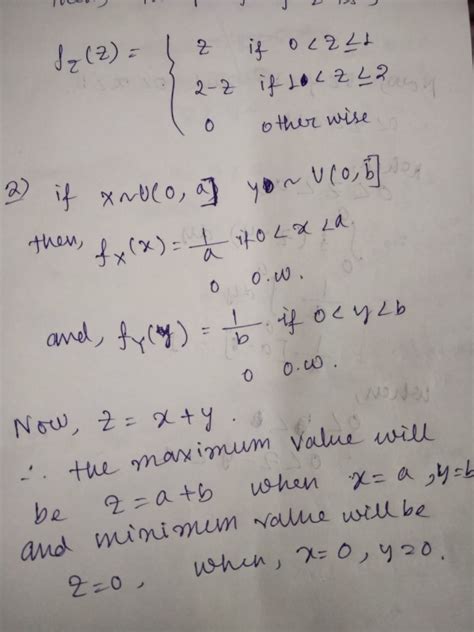 f_Z(z) = { z if 0 < z ≤ 1
2-z if 1 < z ≤ 2
0 otherwise
2) if x ~ U(0, a] y ~ U(0, b]
then, f_X(x) = 1/a if 0 < x < a
0 o.w.
and, f_Y(y) = 1/b if 0 < y < b
0 o.w.
Now, z = x + y.
∴ the maximum value will
be z = a + b when x = a, y = b
and minimum value will be
z = 0, when, x = 0, y = 0.